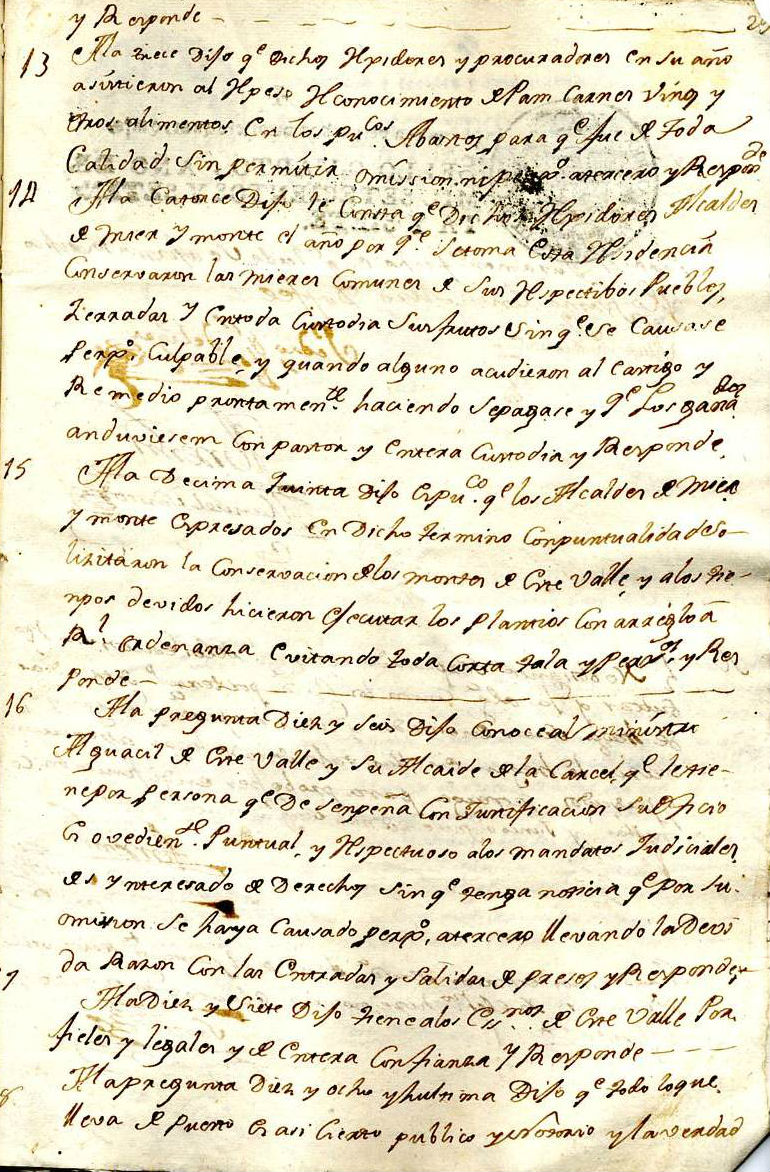 y Responde
13 A la trece Dijo q.e dichos Rejidores y procuradores en su año
asistieron al Repeso Reconocimiento de Pam Carnes Vinos y
otros alimentos en los pu.cos Abastos para q.e fue de toda
Calidad sin permitir omission ni perxo. atercero y Respon.de
14 A la Catorce Dijo le Consta q.e Dichos Rejidores Alcaldes
de Mier y monte el año por q.e se toma esta Residencia
Conservaron las mieses Comunes de sus Respectibos Pueblos
zerradas y en toda Custodia sus frutos sin q.e se Causase
perxo. Culpable, y quando alguno acudieron al Castigo y
Remedio prontamen.te haciendo se pagase y q.e Los gana.dos
anduviesem con pastor y entera Custodia y Responde.
15 A la Decima quinta Dijo es pu.co q.e los Alcaldes de Mier
y monte expresados en Dicho termino con puntualidad so-
lizitaron la Conservacion de los montes de este Valle, y a los tie-
npos devidos hicieron ejecutar los plantios con arreglo a
R.l ordenanza evitando toda Corta tala y perxo. y Res
ponde-
16 A la pregunta Diez y seis Dijo Conoce al ministro
Alguacil de este Valle y su Alcaide de la Carcel, q.e les tie-
ne por persona q.e Desenpeña con Justificacion su oficio
es ovedien.te Puntual, y Respectuoso a los mandatos Judiciales,
des ynteresado de Derechos sin q.e tenga noticia q.e por su
omision se haya Causado perxo. atercero llevando la Devi
da Razon con las entradas y salidas de presos y Responde
7 A la Diez y Siete Dijo tiene a los Ess.nos de este Valle Por
fieles y legales y de entera Confianza y Responde
8 A la pregunta Diez y ocho y hultima Dijo q.e todo lo que
lleva de puesto es asi Cierto publico y Notorio y la verdad